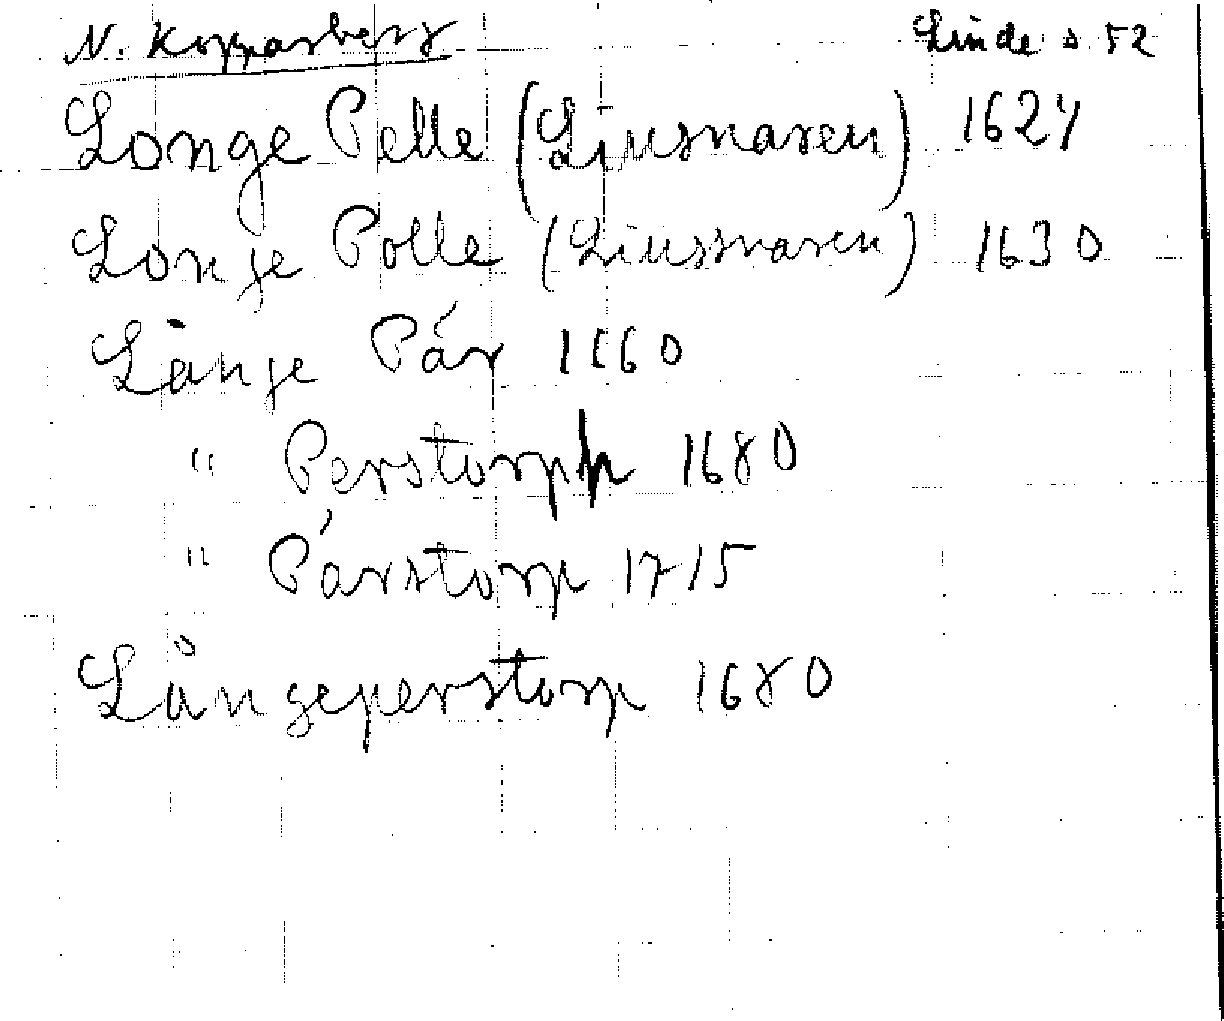 N. Kopparberg Linde s 52
Longe Pelle (Ljusnaren) 1624
Longe Polle (Liusnaren) 1630
Långe Pär 1660
" Perstorph 1680
" Pärstorp 1715
Långeperstorp 1680